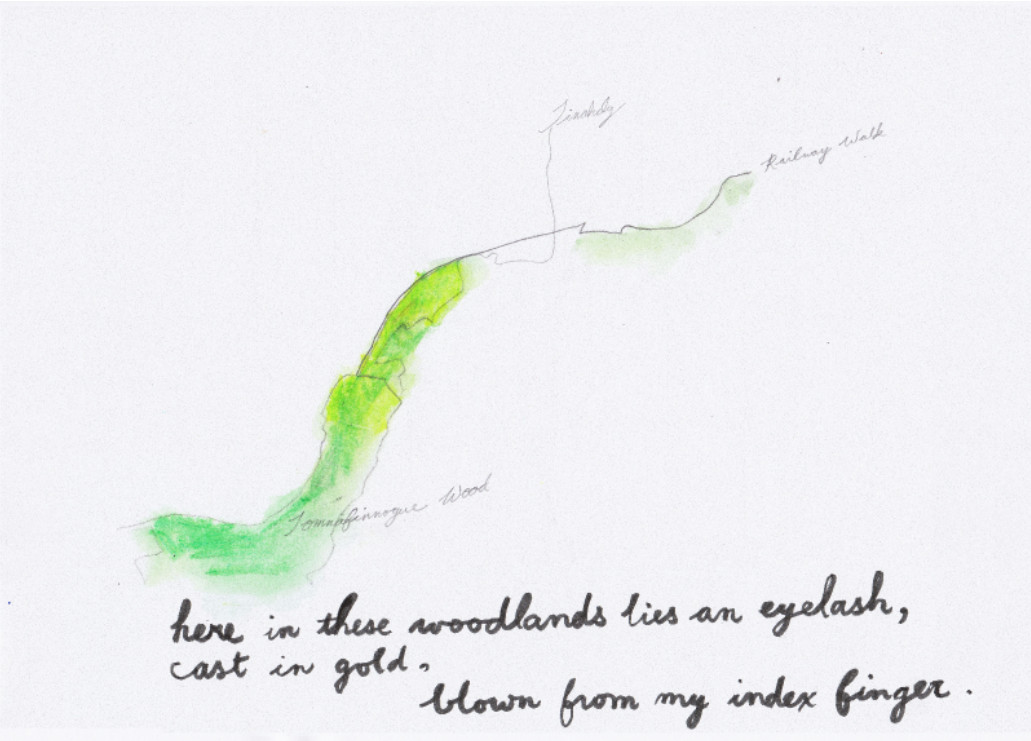 Tinahely
Railway Walk
Tomnafinnogue Wood
here in these woodlands lies an eyelash,
cast in gold.
blown from my index finger.